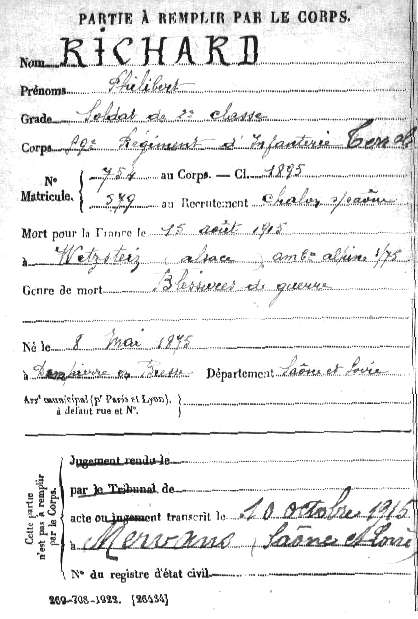 PARTIE À REMPLIR PAR LE CORPS.
Nom RICHARD
Prénoms Philibert
Grade Soldat de 2e classe
Corps 59e Régiment d'Infanterie Terale
N° Matricule. 754 au Corps. — Cl. 1895
579 au Recrutement Chalon s/saône
Mort pour la France le 15 août 1915
à Wetzstein (alsace) ambce alpine 1/75
Genre de mort Blessures de guerre
Né le 8 Mai 1875
à Dampierre en Bresse Département Saône et Loire
Arrt municipal (pr Paris et Lyon),
à défaut rue et N°.
Cette partie n'est pas à remplir par le Corps.
Jugement rendu le
par le Tribunal de
acte ou jugement transcrit le 10 octobre 1915
à Mervans (Saône et Loire)
N° du registre d'état civil
269-708-1922. [26434]